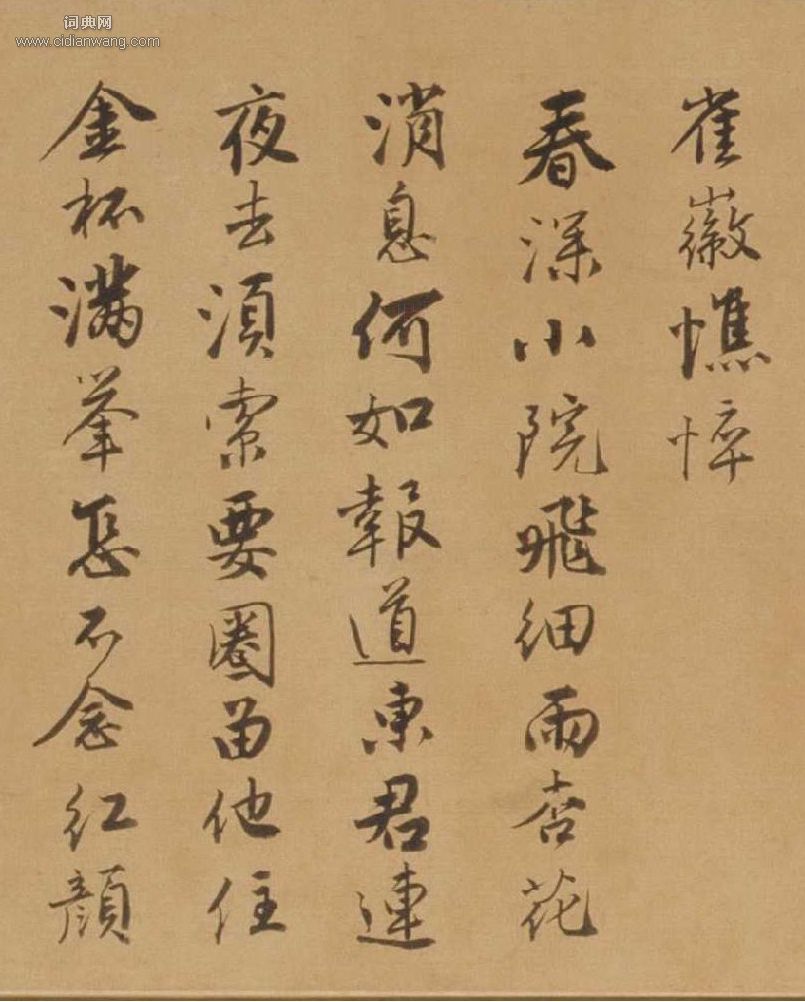 词典网
www.cidianwang.com
崔徽憔悴
春深小院飛細雨杏花
消息何如報道東君連
夜去須索要圈留他住
金杯滿擎怎不念紅顔